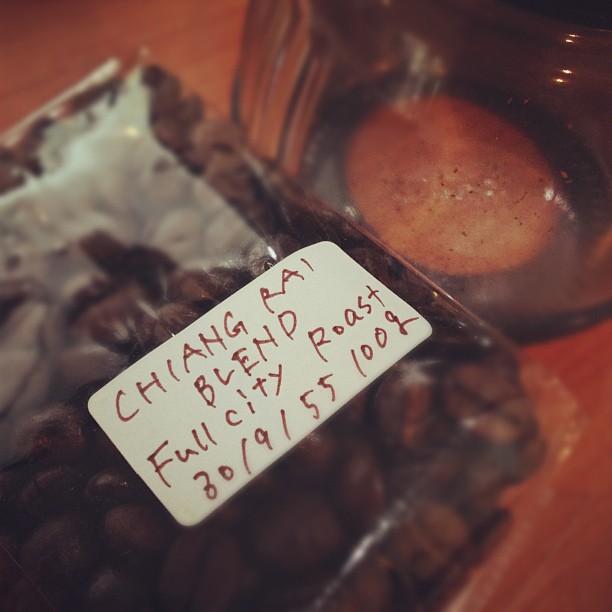 CHIANG RAI
BLEND
Full city Roast
30/9/55 100g